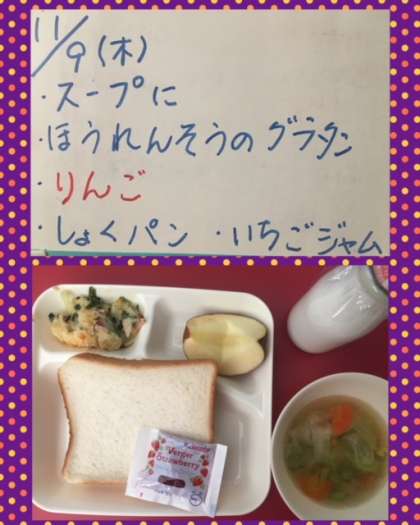 11/9(木)
・スープに
・ほうれんそうのグラタン
・りんご
・しょくパン ・いちごジャム
Verger
Strawberry